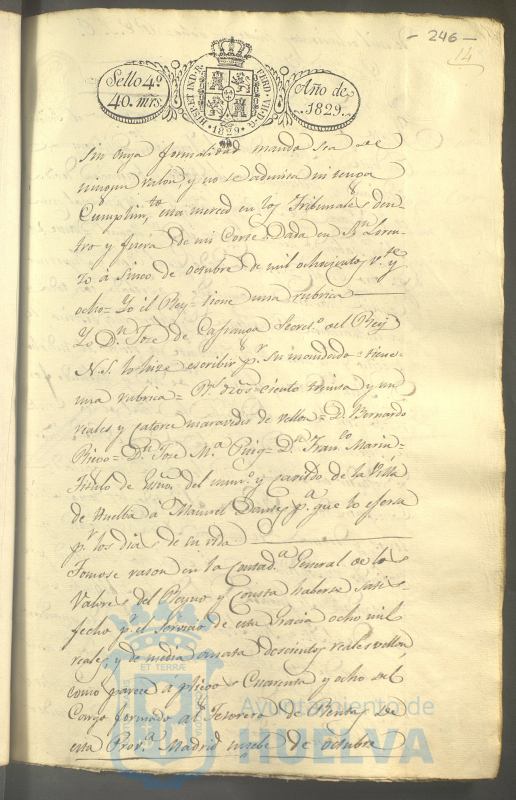 - 246 -
14
Sello 4º
40. mrs.
HISP. ET IND. R.
FERD. VII. D. G.
1829
Año de
1829.
Sin cuya formalidad mando sea de
ningun valor, y no se admita ni tenga
Cumplim.to esta merced en los Tribunales den-
tro y fuera de mi Corte. Dada en Sn Loren-
zo á cinco de octubre de mil ochocientos v.te y
ocho = Yo el Rey = tiene una rubrica
Yo Dn Jose de Cafranga Secret.o del Rey
N. S. lo hize escribir p.r su mandado = tiene
una rubrica = dros ciento treinta y un
reales y catorce maravedis de vellon = D. Bernardo
Riego = Dn Jose M.a Puig = Dn Fran.co Marin =
Titulo de Esno. del num.o y partido de la Villa
de Huelba á Manuel p.a que lo ejersa
p.r los dias de su vida
Tomose rason en la Contad.a General de los
Valores del Reyno y Consta haberse satis-
fecho p.r el servicio de esta Gracia ocho mil
reales, y de media annata doscientos reales vellon
como parece á pliego Cuarenta y ocho del
Cargo formado al Tesorero de Rentas de
esta Prov.a Madrid nuebe de octubre
ET TERRÆ
Ayuntamiento de
HUELVA